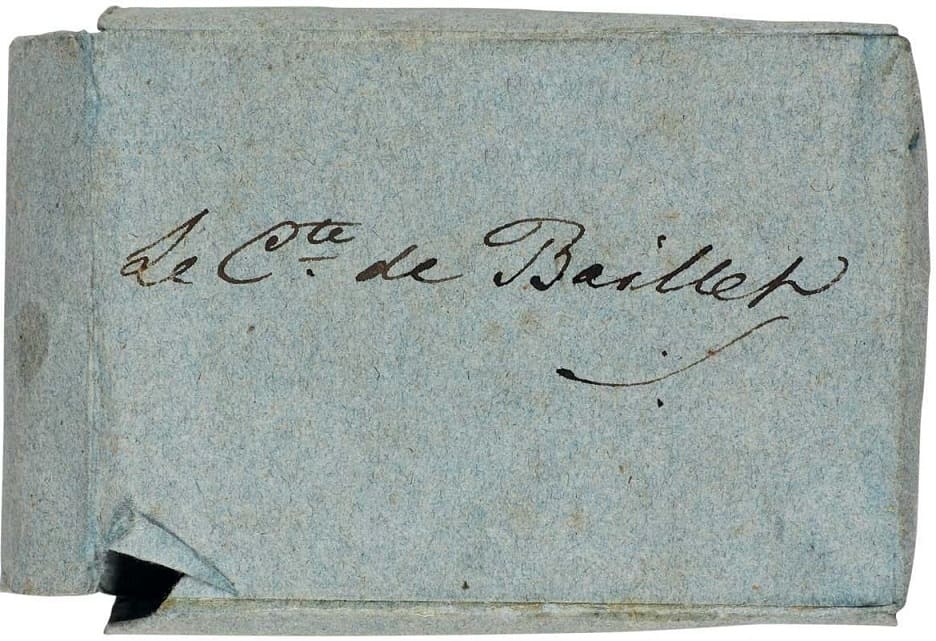 Le Cte de Baillet